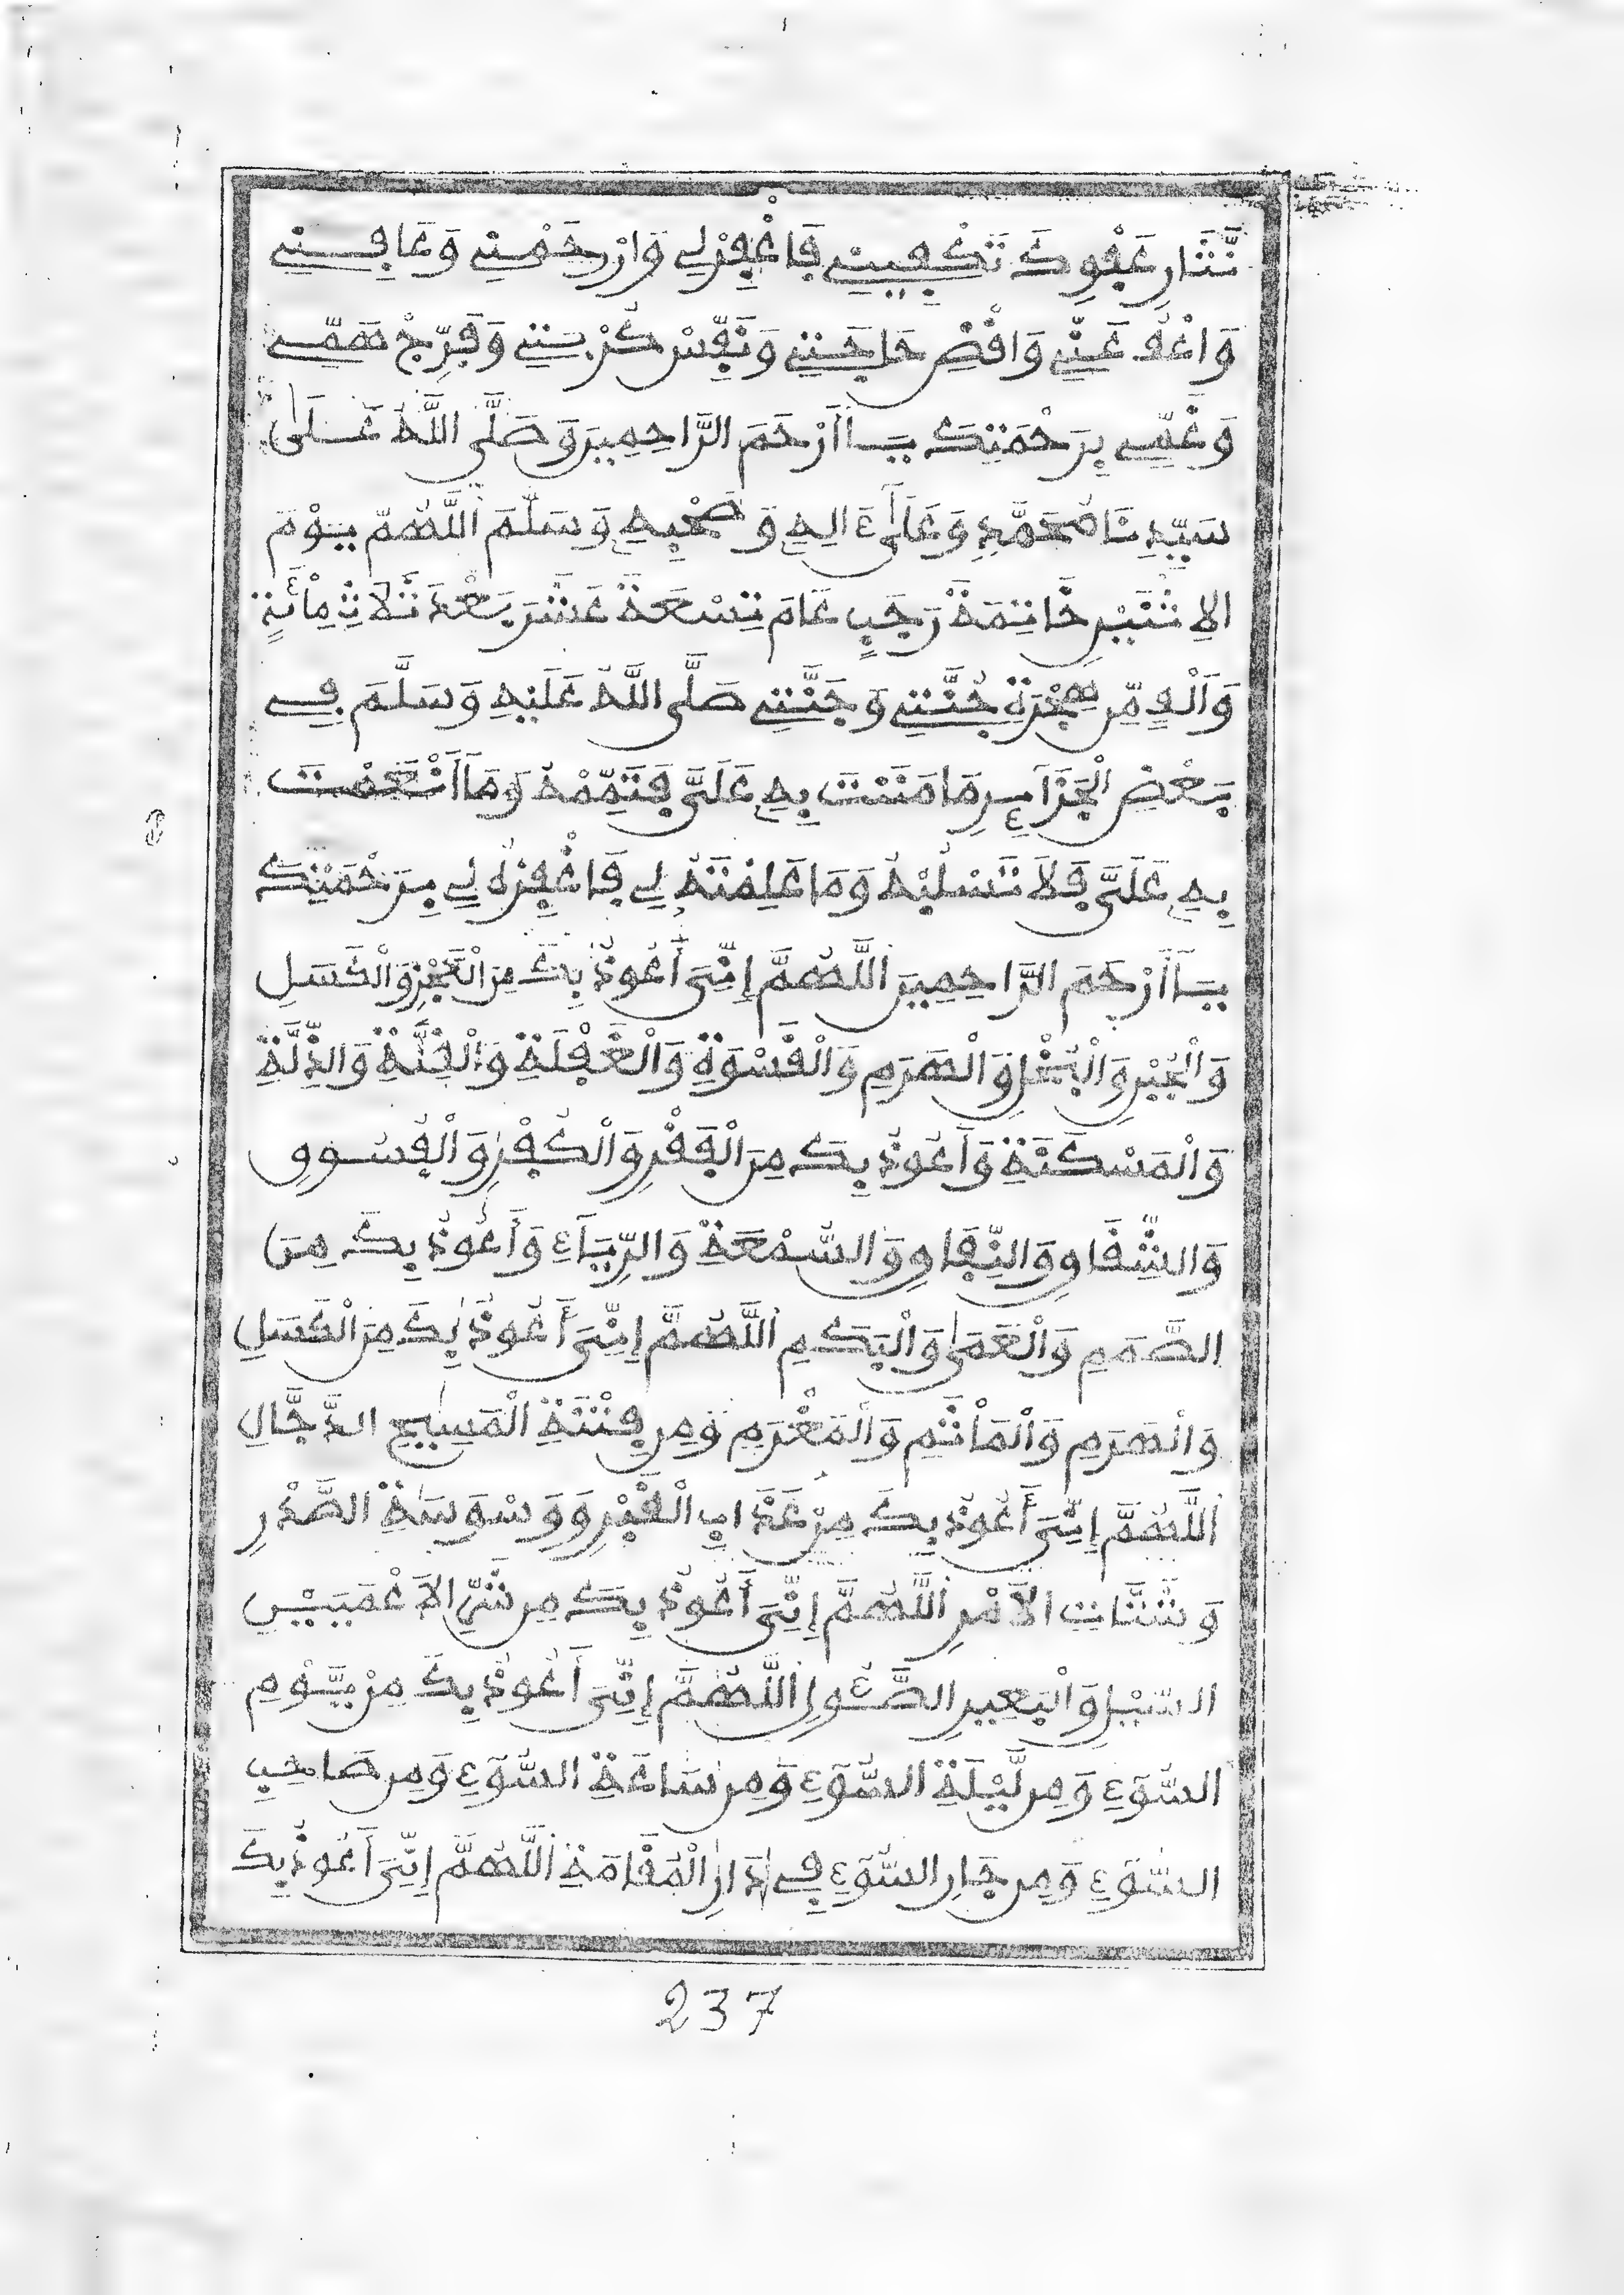 نَّثَارِ عَفْوِكَ تَكْفِينِي فَاغْفِرْ لِي وَارْحَمْنِي وَعَافِنِي
وَاعْفُ عَنِّي وَاقْضِ حَاجَتِي وَنَفِّسْ كُرْبَتِي وَفَرِّجْ هَمِّي
وَغَمِّي بِرَحْمَتِكَ يَا أَرْحَمَ الرَّاحِمِينَ وَصَلَّى اللَّهُ عَلَى
سَيِّدِنَا مُحَمَّدٍ وَعَلَى ءَالِهِ وَصَحْبِهِ وَسَلَّمَ اللَّهُمَّ يَوْمَ
الِاثْنَيْنِ خَاتِمَةَ رَجَبٍ عَامَ تِسْعَةَ عَشَرَ بَعْدَ ثَلَاثِ مِائَةٍ
وَأَلْفٍ مِّن هِجْرَةِ جُنَّتِي وَجَنَّتِي صَلَّى اللَّهُ عَلَيْهِ وَسَلَّمَ فِي
بَعْضِ الْجَزَآئِرِ مَا مَنَنْتَ بِهِ عَلَىَّ فَتَمِّمْهُ وَمَا أَنْعَمْتَ
بِهِ عَلَىَّ فَلَا تَسْلُبْهُ وَمَا عَلِمْتَهُ لِي فَاغْفِرْهُ لِي بِرَحْمَتِكَ
يَا أَرْحَمَ الرَّاحِمِينَ اللَّهُمَّ إِنِّي أَعُوذُ بِكَ مِنَ الْعَجْزِ وَالْكَسَلِ
وَالْجُبْنِ وَالْبُخْلِ وَالْهَرَمِ وَالْقَسْوَةِ وَالْغَفْلَةِ وَالْقِلَّةِ وَالذِّلَّةِ
وَالْمَسْكَنَةِ وَأَعُوذُ بِكَ مِنَ الْفَقْرِ وَالْكُفْرِ وَالْفُسُوقِ
وَالشِّقَاقِ وَالنِّفَاقِ وَالسُّمْعَةِ وَالرِّيَآءِ وَأَعُوذُ بِكَ مِنَ
الصَّمَمِ وَالْعَمَى وَالْبَكَمِ اللَّهُمَّ إِنِّي أَعُوذُ بِكَ مِنَ الْكَسَلِ
وَالْهَرَمِ وَالْمَأْثَمِ وَالْمَغْرَمِ وَمِن فِتْنَةِ الْمَسِيحِ الدَّجَّالِ
اللَّهُمَّ إِنِّي أَعُوذُ بِكَ مِنْ عَذَابِ الْقَبْرِ وَوَسْوَسَةِ الصَّدْرِ
وَشَتَاتِ الْأَمْرِ اللَّهُمَّ إِنِّي أَعُوذُ بِكَ مِن شَرِّ الْأَعْمَيَيْنِ
السَّيْلِ وَالْبَعِيرِ الصَّئُولِ اللَّهُمَّ إِنِّي أَعُوذُ بِكَ مِنْ يَّوْمِ
السُّوءِ وَمِن لَّيْلَةِ السُّوءِ وَمِن سَاعَةِ السُّوءِ وَمِن صَاحِبِ
السُّوءِ وَمِن جَارِ السُّوءِ فِي دَارِ الْمُقَامَةِ اللَّهُمَّ إِنِّي أَعُوذُ بِكَ
237